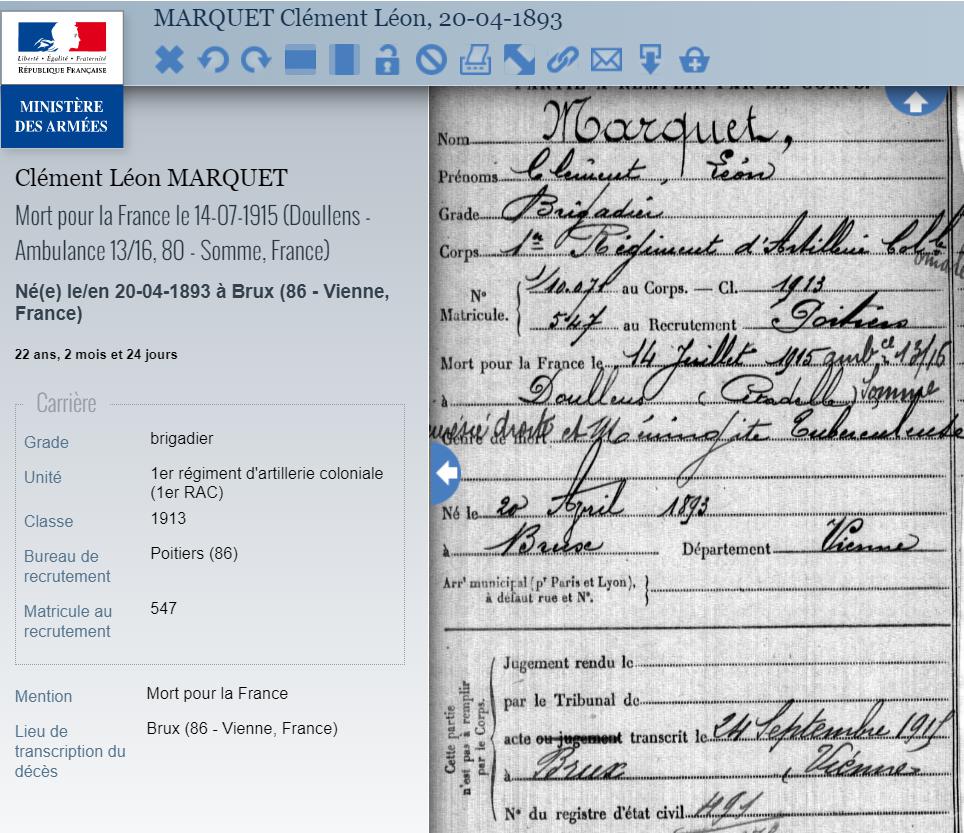 MARQUET Clément Léon, 20-04-1893
Liberté • Égalité • Fraternité
RÉPUBLIQUE FRANÇAISE
MINISTÈRE
DES ARMÉES
Clément Léon MARQUET
Mort pour la France le 14-07-1915 (Doullens -
Ambulance 13/16, 80 - Somme, France)
Né(e) le/en 20-04-1893 à Brux (86 - Vienne,
France)
22 ans, 2 mois et 24 jours
Carrière
Grade brigadier
Unité 1er régiment d'artillerie coloniale
(1er RAC)
Classe 1913
Bureau de Poitiers (86)
recrutement
Matricule au 547
recrutement
Mention Mort pour la France
Lieu de Brux (86 - Vienne, France)
transcription du
décès
PARTIE A REMPLIR PAR LE CORPS.
Nom Marquet,
Prénoms Clément, Léon
Grade Brigadier
Corps 1er Régiment d'Artillerie Colle
N° Matricule. 1/10.071 au Corps. — Cl. 1913
547 au Recrutement Poitiers
Mort pour la France le 14 Juillet 1915 ambce 13/16
à Doullens (Citadelle) Somme
Genre de mort droite et Méningite Tuberculeuse
Né le 20 April 1893
à Brux Département Vienne
Arrt municipal (pr Paris et Lyon),
à défaut rue et N°.
Cette partie
n'est pas à remplir
par le Corps.
Jugement rendu le
par le Tribunal de
acte ou jugement transcrit le 24 Septembre 1915
à Brux, Vienne
N° du registre d'état civil 491